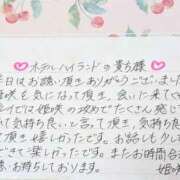 ♡ホテルハイランドの貴方様♡
昨日はお誘い頂きありがとうございました
姫咲も気になって頂き、会いに来てく
イでは姫咲の攻めでたくさん感じ
れ気持ち良いと言って頂き、気持ち良
て頂き嬉しかったです。お話しも少し
できて楽しかったです。またお時間合
致しております。 姫咲